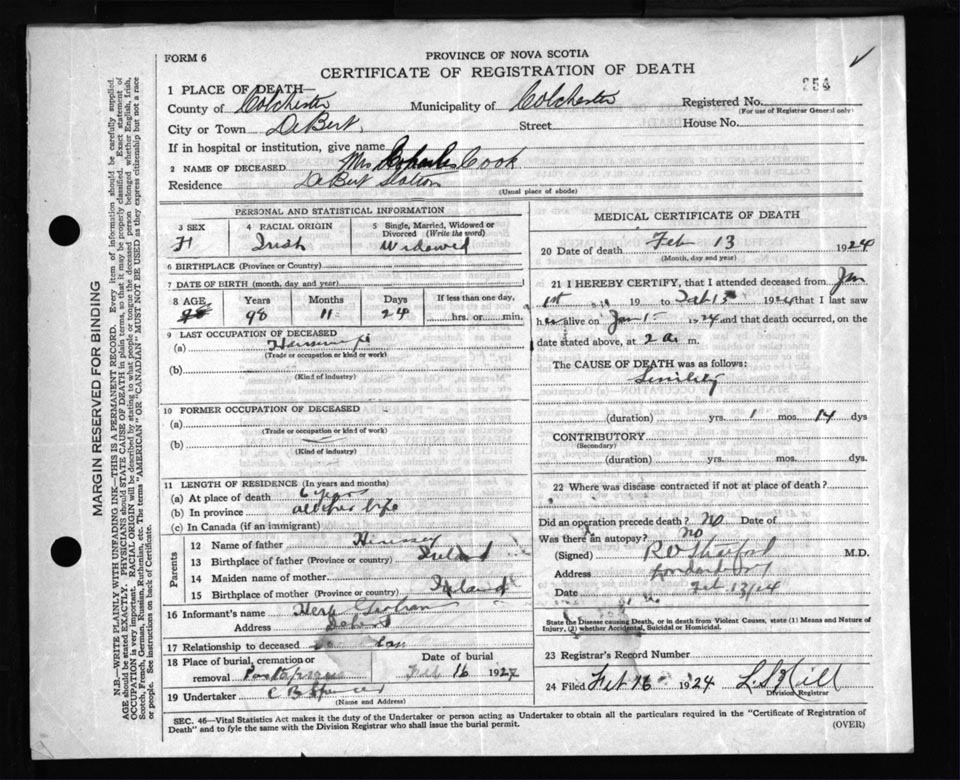 FORM 6
PROVINCE OF NOVA SCOTIA
CERTIFICATE OF REGISTRATION OF DEATH
254
1 PLACE OF DEATH—
County of Colchester Municipality of Colchester Registered No.
(For use of Registrar General only)
City or Town DeBert Street House No.
If in hospital or institution, give name
2 NAME OF DECEASED Mrs Charles Cook
Residence DeBert Station
(Usual place of abode)
PERSONAL AND STATISTICAL INFORMATION
3 SEX
F
4 RACIAL ORIGIN
Irish
5 Single, Married, Widowed or Divorced (Write the word)
Widowed
6 BIRTHPLACE (Province or Country)
7 DATE OF BIRTH (month, day and year)
8 AGE Years Months Days If less than one day,
98 11 24 hrs. or min.
9 LAST OCCUPATION OF DECEASED
(a)
(Trade or occupation or kind or work)
(b)
(Kind of industry)
10 FORMER OCCUPATION OF DECEASED
(a)
(Trade or occupation or kind of work)
(b)
(Kind of industry)
11 LENGTH OF RESIDENCE (In years and months)
(a) At place of death 6 years
(b) In province all her life
(c) In Canada (if an immigrant)
Parents
12 Name of father
13 Birthplace of father (Province or country) Ireland
14 Maiden name of mother
15 Birthplace of mother (Province or country) Ireland
16 Informant's name Herb
Address Debert
17 Relationship to deceased
18 Place of burial, cremation or removal
Date of burial
Feb 16 192
19 Undertaker C B Spencer
(Name and Address)
MEDICAL CERTIFICATE OF DEATH
20 Date of death Feb 13 1924
(Month, day and year)
21 I HEREBY CERTIFY, that I attended deceased from Jan
1st 19 to Feb 13 1924 that I last saw
her alive on Jan 1 1924 and that death occurred, on the
date stated above, at 2 a. m.
The CAUSE OF DEATH was as follows:
Senility
(duration) yrs. 1 mos. 14 dys
CONTRIBUTORY
(Secondary)
(duration) yrs. mos. dys.
22 Where was disease contracted if not at place of death?
Did an operation precede death? no Date of
Was there an autopsy? no
(Signed) M.D.
Address
Date Feb 13/24
State the Disease causing Death, or in death from Violent Causes, state (1) Means and Nature of Injury, (2) whether Accidental, Suicidal or Homicidal.
23 Registrar's Record Number
24 Filed Feb 16 1924 L. S. Hill
Division Registrar
SEC. 46—Vital Statistics Act makes it the duty of the Undertaker or person acting as Undertaker to obtain all the particulars required in the "Certificate of Registration of
Death" and to fyle the same with the Division Registrar who shall issue the burial permit. (OVER)
MARGIN RESERVED FOR BINDING
N.B.—WRITE PLAINLY WITH UNFADING INK—THIS IS A PERMANENT RECORD. Every item of information should be carefully supplied.
AGE should be stated EXACTLY. PHYSICIANS should STATE CAUSE OF DEATH in plain terms, so that it may be properly classified. Exact statement of
OCCUPATION is very important. RACIAL ORIGIN will be described by stating to what people or tongue the deceased person belonged whether English, Irish,
Scotch, French, German, Russian, Ruthenian, etc. The terms "AMERICAN" OR "CANADIAN" MUST NOT BE USED as they express citizenship but not a race
or people. See instructions on back of Certificate.